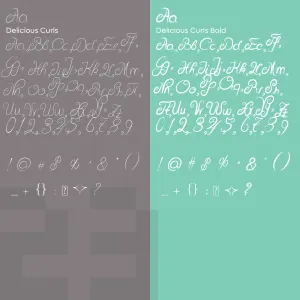 Aa
Delicious Curls
Aa, Bb, Cc, Dd, Ee, Ff,
Gg, Hh, Ii, Jj, Kk, Ll, Mm,
Nn, Oo, Pp, Qq, Rr, Ss, Tt,
Uu, Vv, Ww, Xx, Yy, Zz
0,1,2,3,4,5,6,7,8,9
! @ # $ % & * ( )
_ + { } : ?
Aa
Delicious Curls Bold
Aa, Bb, Cc, Dd, Ee, Ff,
Gg, Hh, Ii, Jj, Kk, Ll, Mm,
Nn, Oo, Pp, Qq, Rr, Ss, Tt,
Uu, Vv, Ww, Xx, Yy, Zz
0,1,2,3,4,5,6,7,8,9
! @ # $ % & * ( )
_ + { } : ?